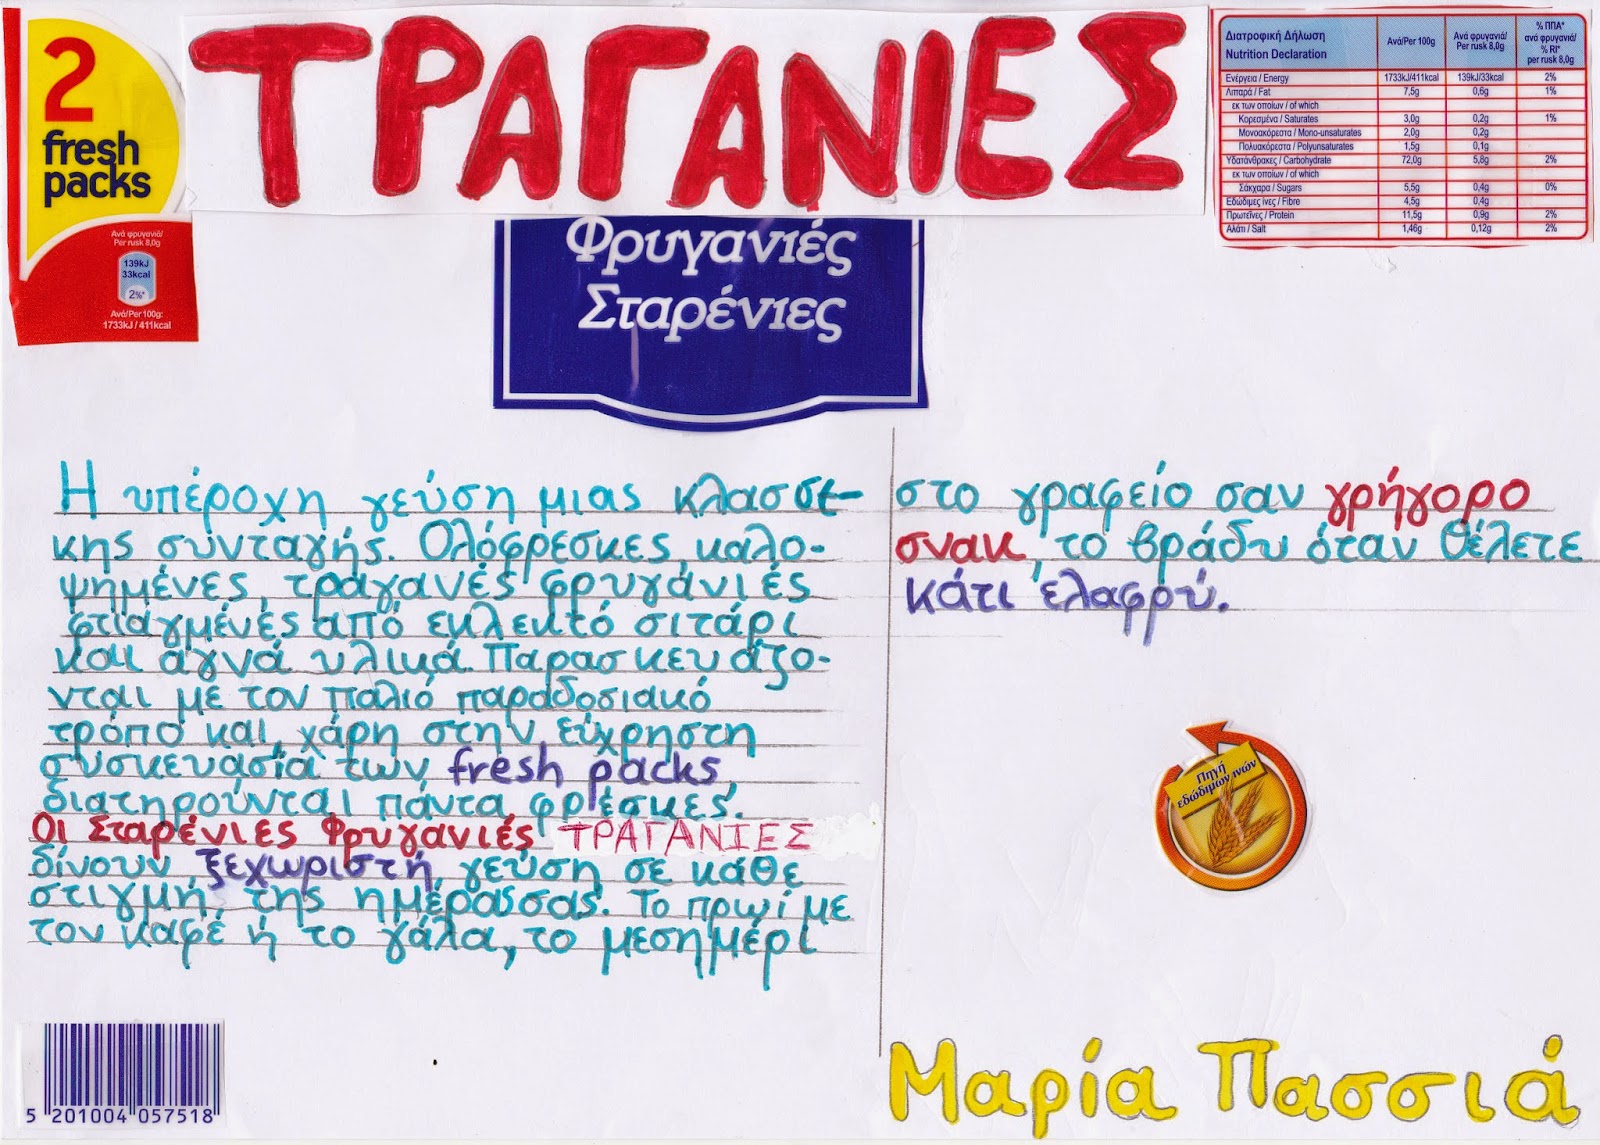 2
fresh
packs
Ανά φρυγανιά/
Per rusk 8,0g
139kJ
33kcal
2%*
Ανά/Per 100g:
1733kJ / 411kcal
ΤΡΑΓΑΝΙΕΣ
Φρυγανιές
Σταρένιες
Διατροφική Δήλωση
Nutrition Declaration
Ανά/Per 100g
Ανά φρυγανιά/
Per rusk 8,0g
% ΠΠΑ*
ανά φρυγανιά/
% RI*
per rusk 8,0g
Ενέργεια / Energy 1733kJ/411kcal 139kJ/33kcal 2%
Λιπαρά / Fat 7,5g 0,6g 1%
εκ των οποίων / of which
Κορεσμένα / Saturates 3,0g 0,2g 1%
Μονοακόρεστα / Mono-unsaturates 2,0g 0,2g
Πολυακόρεστα / Polyunsaturates 1,5g 0,1g
Υδατάνθρακες / Carbohydrate 72,0g 5,8g 2%
εκ των οποίων / of which
Σάκχαρα / Sugars 5,5g 0,4g 0%
Εδώδιμες ίνες / Fibre 4,5g 0,4g
Πρωτεΐνες / Protein 11,5g 0,9g 2%
Αλάτι / Salt 1,46g 0,12g 2%
Η υπέροχη γεύση μιας κλασσι-
κης συνταγής. Ολόφρεσκες, καλο-
ψημένες, τραγανές φρυγάνιές
φτιαγμένες από εκλεκτό σιτάρι
και αγνά υλικά. Παρασκευάζο-
νται με τον παλιό παραδοσιακό
τρόπο και, χάρη στην εύχρηστη
συσκευασία των fresh packs,
διατηρούνται πάντα φρέσκες.
Οι Σταρένιες Φρυγανιές ΤΡΑΓΑΝΙΕΣ
δίνουν ξεχωριστή γεύση σε κάθε
στιγμή της ημέρας σας. Το πρωί με
τον καφέ ή το γάλα, το μεσημέρι
στο γραφείο σαν γρήγορο
σνακ, το βράδυ όταν θέλετε
κάτι ελαφρύ.
Πηγή
εδώδιμων ινών
5 201004 057518
Μαρία Πασσιά